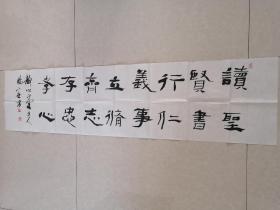 讀聖
賢書
行仁
義事
立脩
齊志
存忠
孝心